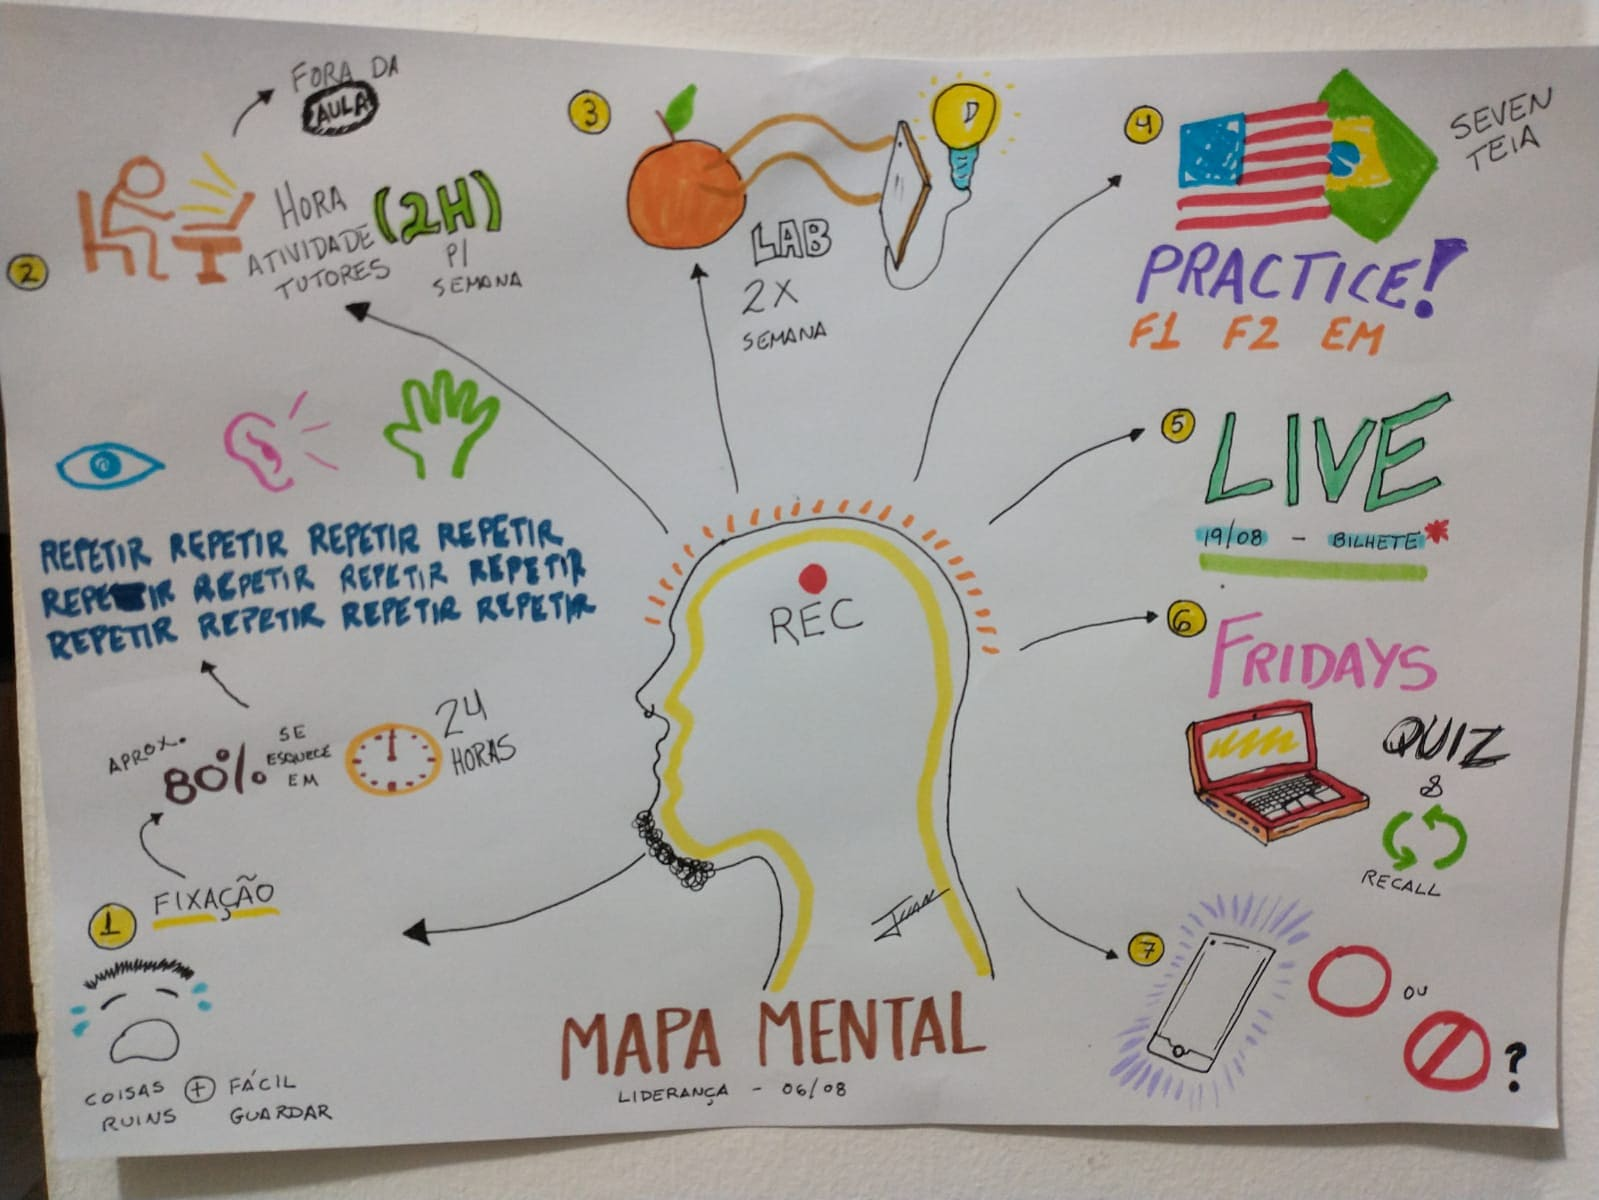 FORA DA
AULA
2
HORA
ATIVIDADE
TUTORES
(2H)
P/
SEMANA
3
D
LAB
2X
SEMANA
4
SEVEN
TEIA
PRACTICE!
F1 F2 EM
5
LIVE
19/08 - BILHETE*
6
FRIDAYS
QUIZ
&
RECALL
7
OU
?
REPETIR REPETIR REPETIR REPETIR
REPETIR REPETIR REPETIR REPETIR
REPETIR REPETIR REPETIR REPETIR
APROX.
80%
SE
ESQUECE
EM
24
HORAS
1
FIXAÇÃO
COISAS
RUINS
+
FÁCIL
GUARDAR
REC
JUAN
MAPA MENTAL
LIDERANÇA - 06/08